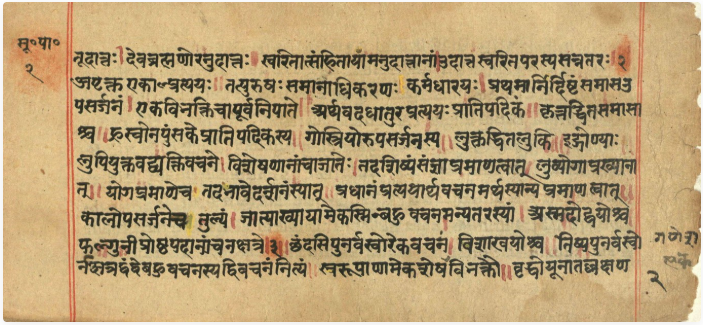 सू॰पा॰
२
नूदात्तः देवब्रह्मणोरनुदात्तः स्वरितात्संहितायामनुदात्तानां उदात्तस्वरितपरस्यसन्नतरः २
अपृक्तएकाल्प्रत्ययः तत्पुरुषः समानाधिकरणः कर्मधारयः प्रथमानिर्दिष्टंसमासउ
पसर्जनं एकविभक्तिचापूर्वनिपाते अर्थवदधातुरप्रत्ययः प्रातिपदिकं कृत्तद्धितसमासा
श्च ह्रस्वोनपुंसकेप्रातिपदिकस्य गोस्त्रियोरुपसर्जनस्य लुक्तद्धितलुकि इद्गोण्याः
लुपियुक्तवद्व्यक्तिवचने विशेषणानांचाजातेः तदशिष्यंसंज्ञाप्रमाणत्वात् लुब्योगाप्रख्याना
त् योगप्रमाणेच तदभावेदर्शनंस्यात् प्रधानप्रत्ययार्थवचनमर्थस्यान्यप्रमाणत्वात्
कालोपसर्जनेच तुल्यं जात्याख्यायामेकस्मिन्बहुवचनमन्यतरस्यां अस्मदोद्वयोश्च
फल्गुनीप्रोष्ठपदानांचनक्षत्रे ३ छंदसिपुनर्वस्वोरेकवचनं विशाखयोश्च तिष्यपुनर्वस्वो
र्नक्षत्रद्वंद्वेबहुवचनस्यद्विवचनंनित्यं सरूपाणामेकशेषएकविभक्तौ वृद्धोयूनातल्लक्षण
२